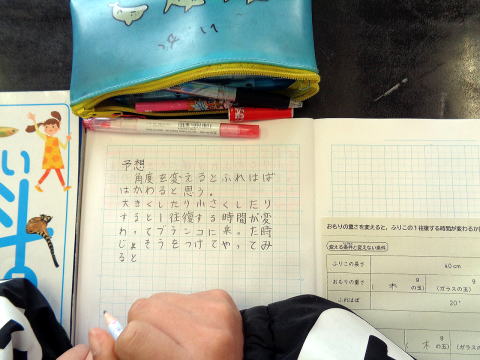 予想
角度を変えるとふれはば
はかわると思う。
大きくしたり小さくしたり
すると1往復する時間が変
わってブランコに乗った時
じょそうをつけてやってみ
ると
い
おもりの重さを変えると、ふりこの1往復する時間が変わるか
変える条件と変えない条件
ふりこの長さ 40cm
おもりの重さ g (木の玉) g (ガラスの玉)
ふれはば 20°
g (木の玉) g (ガラス